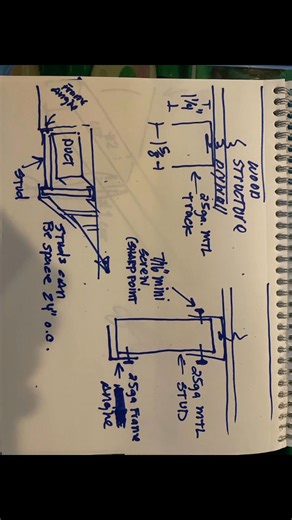 WOOD
STRUCTURE
DRYWALL
1 1/4"
1 5/8
25ga. MTL
TRACK
7/16 mini
screw
(SHARP POINT
25ga MTL
STUD
25ga Frame
Angle
From
Angle
DUCT
Stud
Studs can
Be space 24" o.c.